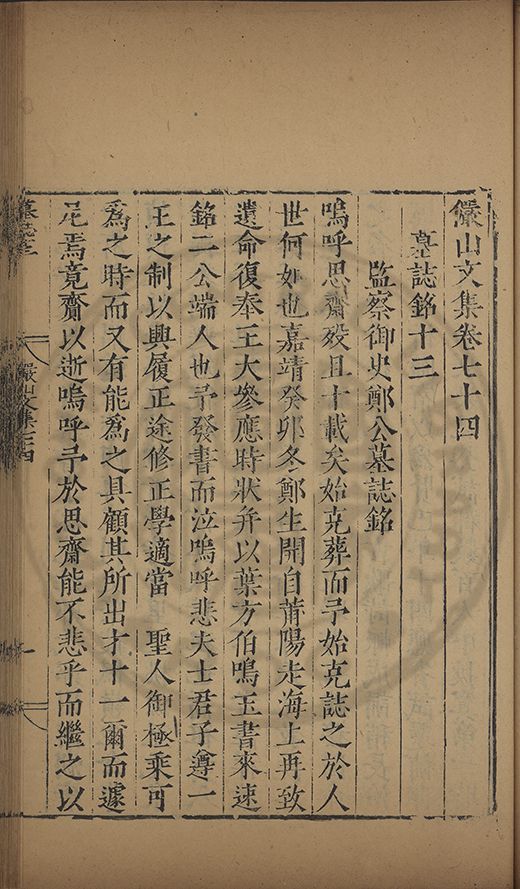 儼山文集卷七十四
墓誌銘十三
監察御史鄭公墓誌銘
嗚呼思齋歿且十載矣始克葬而予始克誌之於人
世何如也嘉靖癸卯冬鄭生開自莆陽走海上再致
遺命復奉王大參應時狀并以葉方伯鳴玉書來速
銘二公端人也予發書而泣嗚呼悲夫士君子遵一
王之制以興履正途修正學適當 聖人御極乘可
爲之時而又有能爲之具顧其所出才十一爾而遽
尼焉竟齎以逝嗚呼予於思齋能不悲乎而繼之以
儼山文集七十四
一